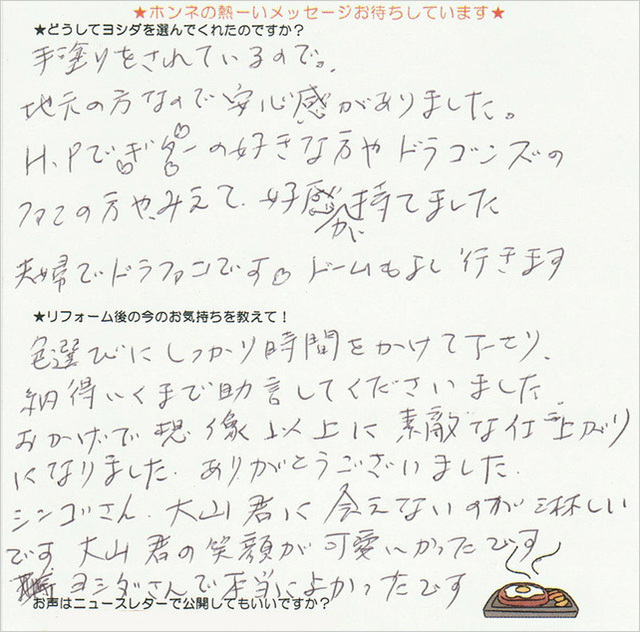 ★ホンネの熱ーいメッセージお待ちしています★
★どうしてヨシダを選んでくれたのですか？
手塗りをされているので。
地元の方なので安心感がありました。
H.Pで の好きな方やドラゴンズの
ファンの方やみえて、好感が持てました
夫婦でドラファンです。ドームもよく行きます
★リフォーム後の今のお気持ちを教えて！
色選びにしっかり時間をかけて下さり、
納得いくまで助言してくださいました。
おかげで想像以上に素敵な仕上がり
になりました。ありがとうございました。
シンゴさん、大山君に会えないのが淋しい
です 大山君の笑顔が可愛いかったです
ヨシダさんで本当によかったです
お声はニュースレターで公開してもいいですか？